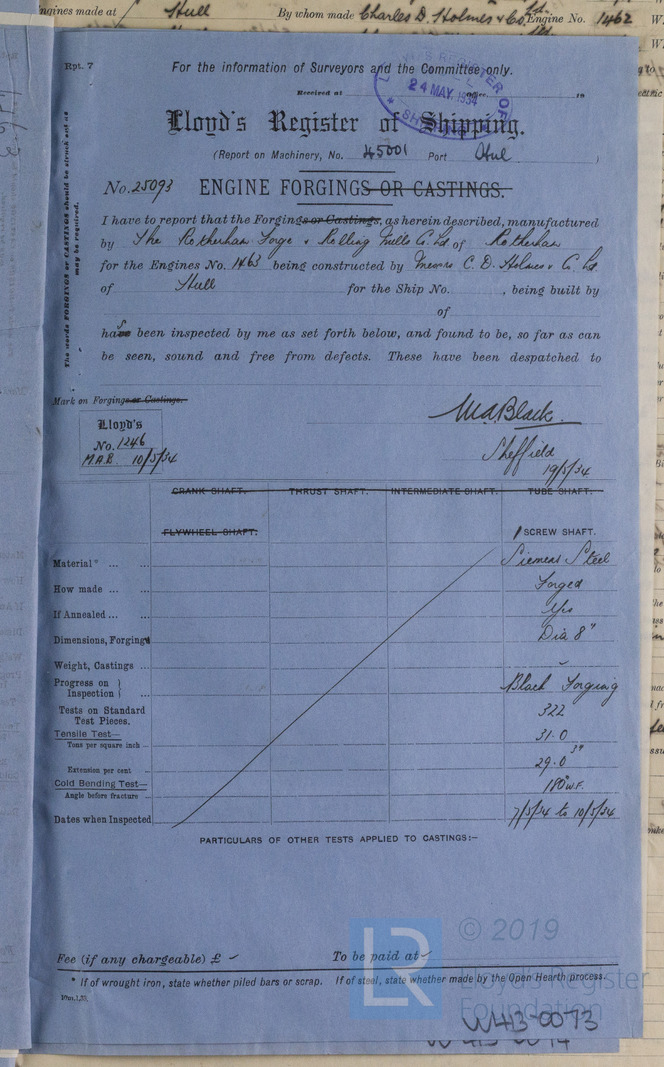 Engines made at Hull By whom made Charles D. Holmes & Co Ltd. Engine No. 1462
Rpt. 7
For the information of Surveyors and the Committee only.
Received at
24 MAY. 1934
Lloyd's Register of Shipping.
(Report on Machinery, No. 45001 Port Hul )
No. 25093 ENGINE FORGINGS OR CASTINGS.
The words FORGINGS or CASTINGS should be struck out as
may be required.
I have to report that the Forgings or Castings, as herein described, manufactured
by The Rotherham Forge & Rolling Mills Co. Ld of Rotherham
for the Engines No. 1463 being constructed by Messrs C. D. Holmes & Co Ld.
of Hull for the Ship No. , being built by
of
has been inspected by me as set forth below, and found to be, so far as can
be seen, sound and free from defects. These have been despatched to
Mark on Forgings or Castings.
Lloyd's
No. 1246
M.A.B. 10/5/34
M.A. Black.
Sheffield
19/5/34
CRANK SHAFT. THRUST SHAFT. INTERMEDIATE SHAFT. TUBE SHAFT.
FLYWHEEL SHAFT. 1 SCREW SHAFT.
Material* ... ... Siemens Steel
How made ... ... Forged
If Annealed ... ... Yes
Dimensions, Forgings Dia 8"
Weight, Castings ...
Progress on } Inspection } ... Black Forging
Tests on Standard Test Pieces. 322
Tensile Test—
Tons per square inch ... 31.0
Extension per cent 29.0 3"
Cold Bending Test—
Angle before fracture 180° W.F.
Dates when Inspected 7/5/34 to 10/5/34
PARTICULARS OF OTHER TESTS APPLIED TO CASTINGS:—
Fee (if any chargeable) £ To be paid at
* If of wrought iron, state whether piled bars or scrap. If of steel, state whether made by the Open Hearth process.
© 2019
LR
Lloyd's Register
Foundation
W413-0073